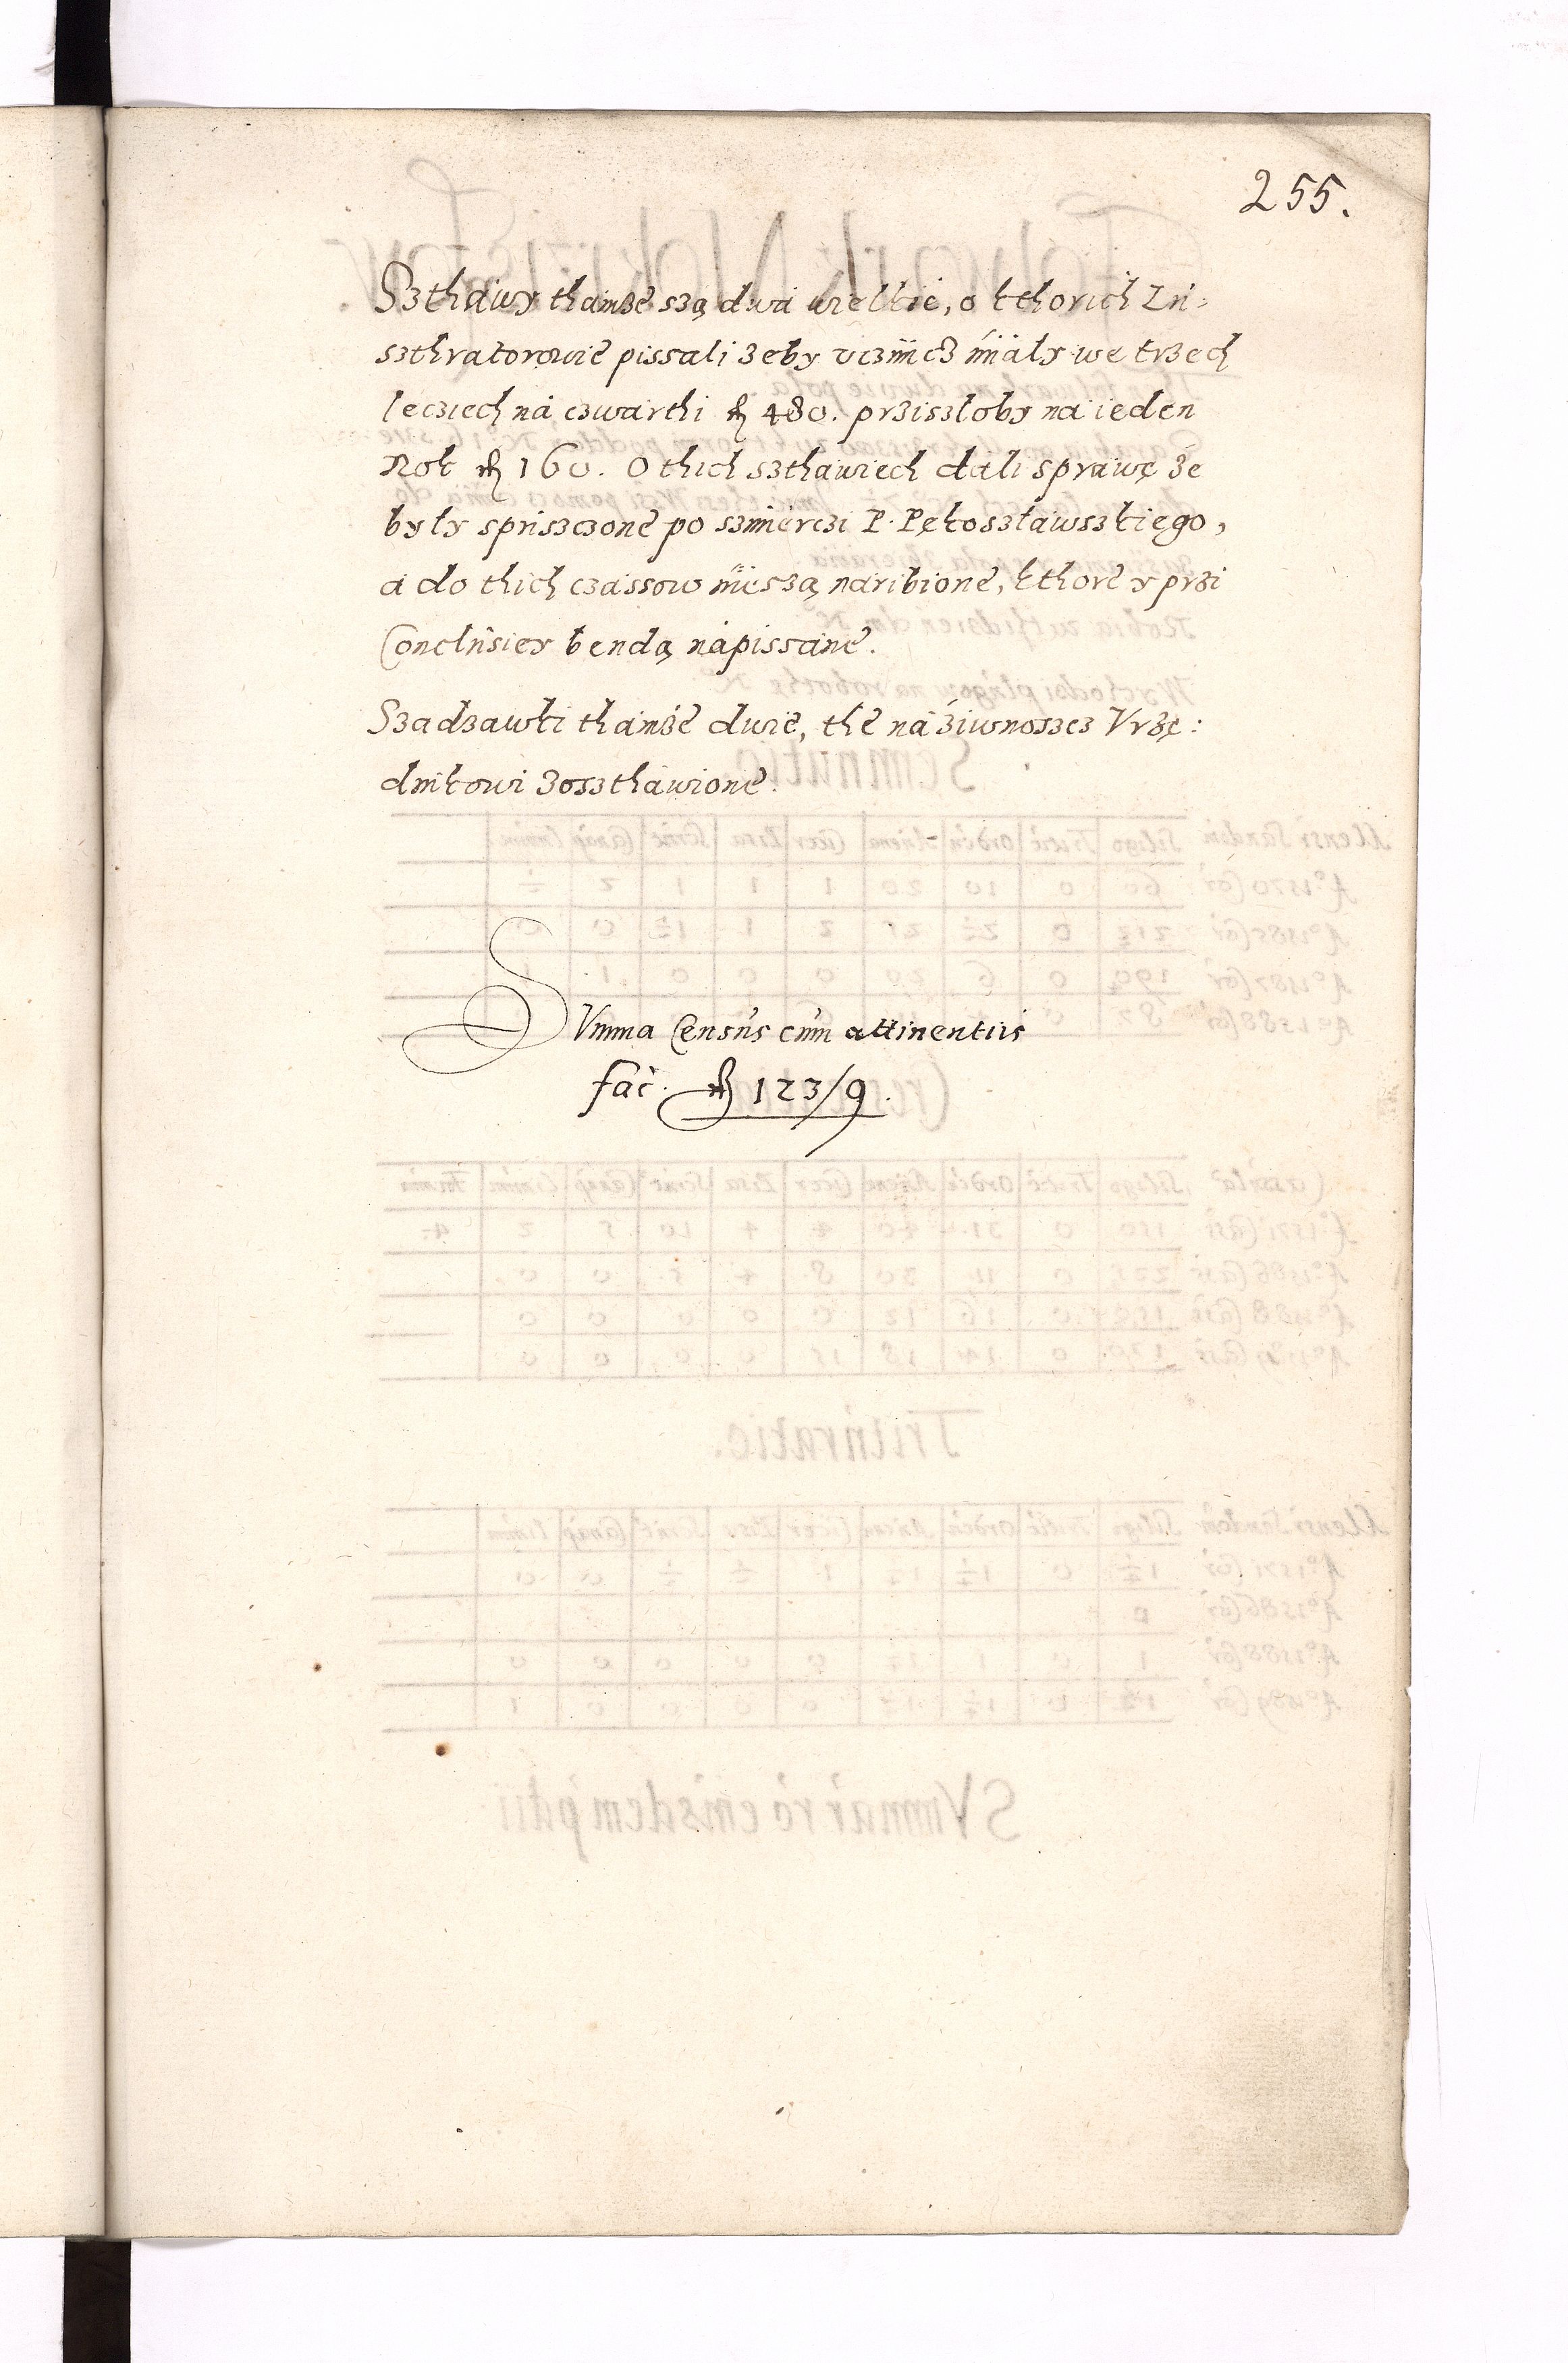 255.
Szthawy thamże szą dwa wielkie, o kthorich In-
szthratorowie pissali żeby vczinicz miały we trzech
lecziech na czwarthi fl 480. prziszłoby na ieden
Rok fl 160. O thich szthawiech dali sprawę że
były spusczone po szmierczi P. Pękoszławsskiego,
a do thich czassow nie szą naribione, kthore y przi
Conclusiey bendą napissane.
Szadzawki thamże dwie, the na żiwnoszcz Vrzę:
dnikowi zosszthawione.
SVmma Census cum attinentiis
fac. fl 123/9.